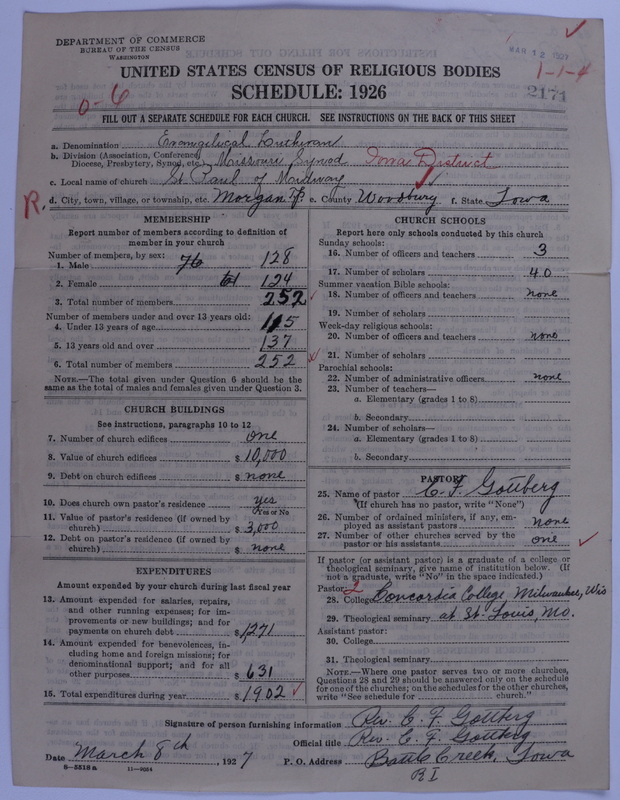 DEPARTMENT OF COMMERCE
BUREAU OF THE CENSUS
WASHINGTON
MAR 12 1927
UNITED STATES CENSUS OF RELIGIOUS BODIES
1-1-4
SCHEDULE: 1926
2171
0-6
FILL OUT A SEPARATE SCHEDULE FOR EACH CHURCH. SEE INSTRUCTIONS ON THE BACK OF THIS SHEET
a. Denomination Evangelical Lutheran
b. Division (Association, Conference,
Diocese, Presbytery, Synod, etc.) Missouri Synod Iowa District
c. Local name of church St Paul of Midway
R. d. City, town, village, or township, etc. Morgan e. County Woodbury f. State Iowa
MEMBERSHIP
Report number of members according to definition of
member in your church
Number of members, by sex:
1. Male 76 128
2. Female 61 124
3. Total number of members 252
Number of members under and over 13 years old:
4. Under 13 years of age 115
5. 13 years old and over 137
6. Total number of members 252
NOTE.—The total given under Question 6 should be the
same as the total of males and females given under Question 3.
CHURCH BUILDINGS
See instructions, paragraphs 10 to 12
7. Number of church edifices one
8. Value of church edifices $ 10,000
9. Debt on church edifices $ none
10. Does church own pastor's residence yes
Yes or No
11. Value of pastor's residence (if owned by
church) $ 3,000
12. Debt on pastor's residence (if owned by
church) $ none
EXPENDITURES
Amount expended by your church during last fiscal year
13. Amount expended for salaries, repairs,
and other running expenses; for im-
provements or new buildings; and for
payments on church debt $ 1271
14. Amount expended for benevolences, in-
cluding home and foreign missions; for
denominational support; and for all
other purposes $ 631
15. Total expenditures during year $ 1902
CHURCH SCHOOLS
Report here only schools conducted by this church
Sunday schools:
16. Number of officers and teachers 3
17. Number of scholars 40
Summer vacation Bible schools:
18. Number of officers and teachers none
19. Number of scholars
Week-day religious schools:
20. Number of officers and teachers none
21. Number of scholars
Parochial schools:
22. Number of administrative officers none
23. Number of teachers—
a. Elementary (grades 1 to 8)
b. Secondary
24. Number of scholars—
a. Elementary (grades 1 to 8)
b. Secondary
PASTOR
25. Name of pastor C. F. Gottberg
(If church has no pastor, write "None")
26. Number of ordained ministers, if any, em-
ployed as assistant pastors none
27. Number of other churches served by the
pastor or his assistants one
If pastor (or assistant pastor) is a graduate of a college or
theological seminary, give name of institution below. (If
not a graduate, write "No" in the space indicated.)
Pastor: 2
28. College Concordia College, Milwaukee, Wis
29. Theological seminary at St. Louis, Mo.
Assistant pastor:
30. College
31. Theological seminary
NOTE.—Where one pastor serves two or more churches,
Questions 28 and 29 should be answered only on the schedule
for one of the churches; on the schedules for the other churches,
write "See schedule for church."
Signature of person furnishing information Rev. C. F. Gottberg
Official title Rev. C. F. Gottberg
Date March 8th, 1927 P. O. Address Battle Creek, Iowa
R I
8-5518 a 11-9054